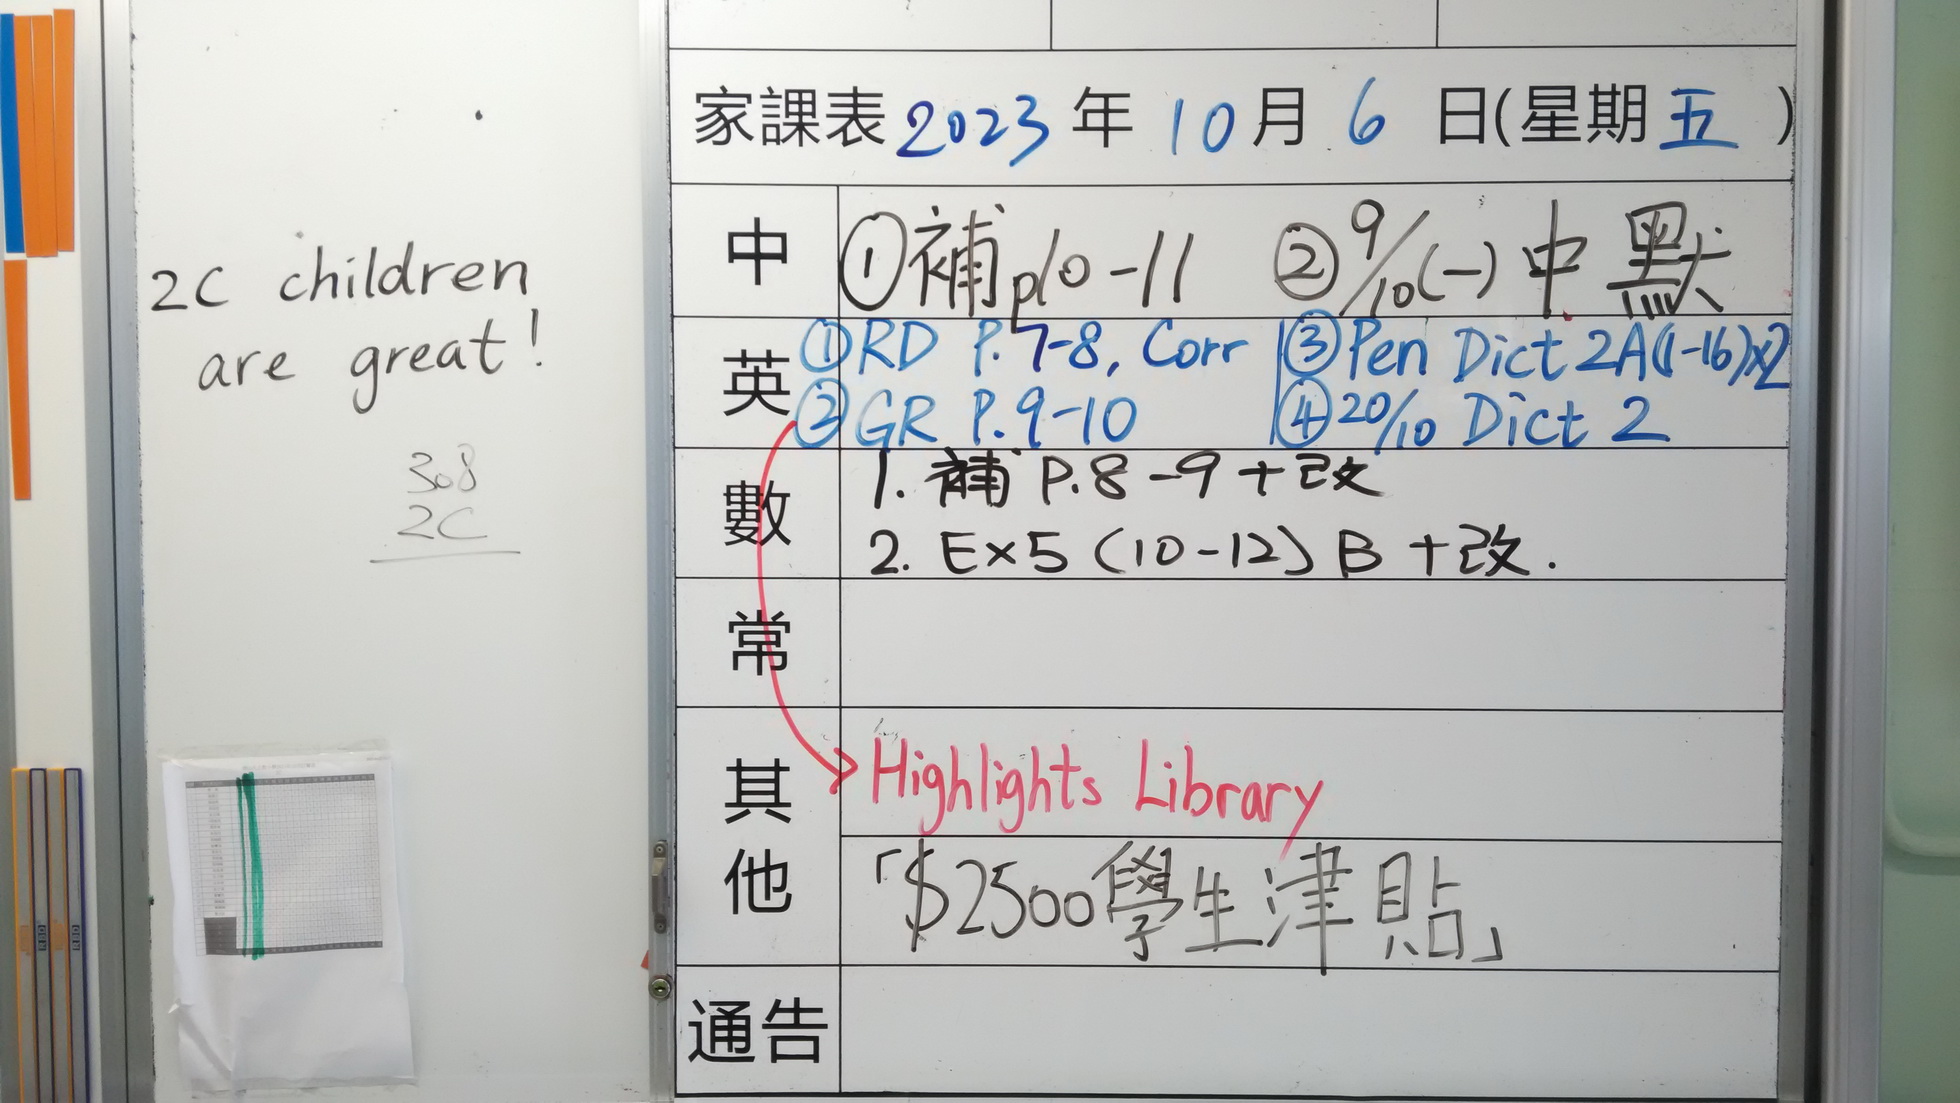 2C children
are great!
308
2C
家課表 2023 年 10 月 6 日(星期 五 )
中 ①補p10-11 ②9/10(一)中默
英 ①RD P.7-8, Corr ③Pen Dict 2A(1-16)x2
②GR P.9-10 ④20/10 Dict 2
數 1. 補 P.8-9+改
2. Ex5 (10-12) B +改.
常
其他 Highlights Library
「$2500學生津貼」
通告